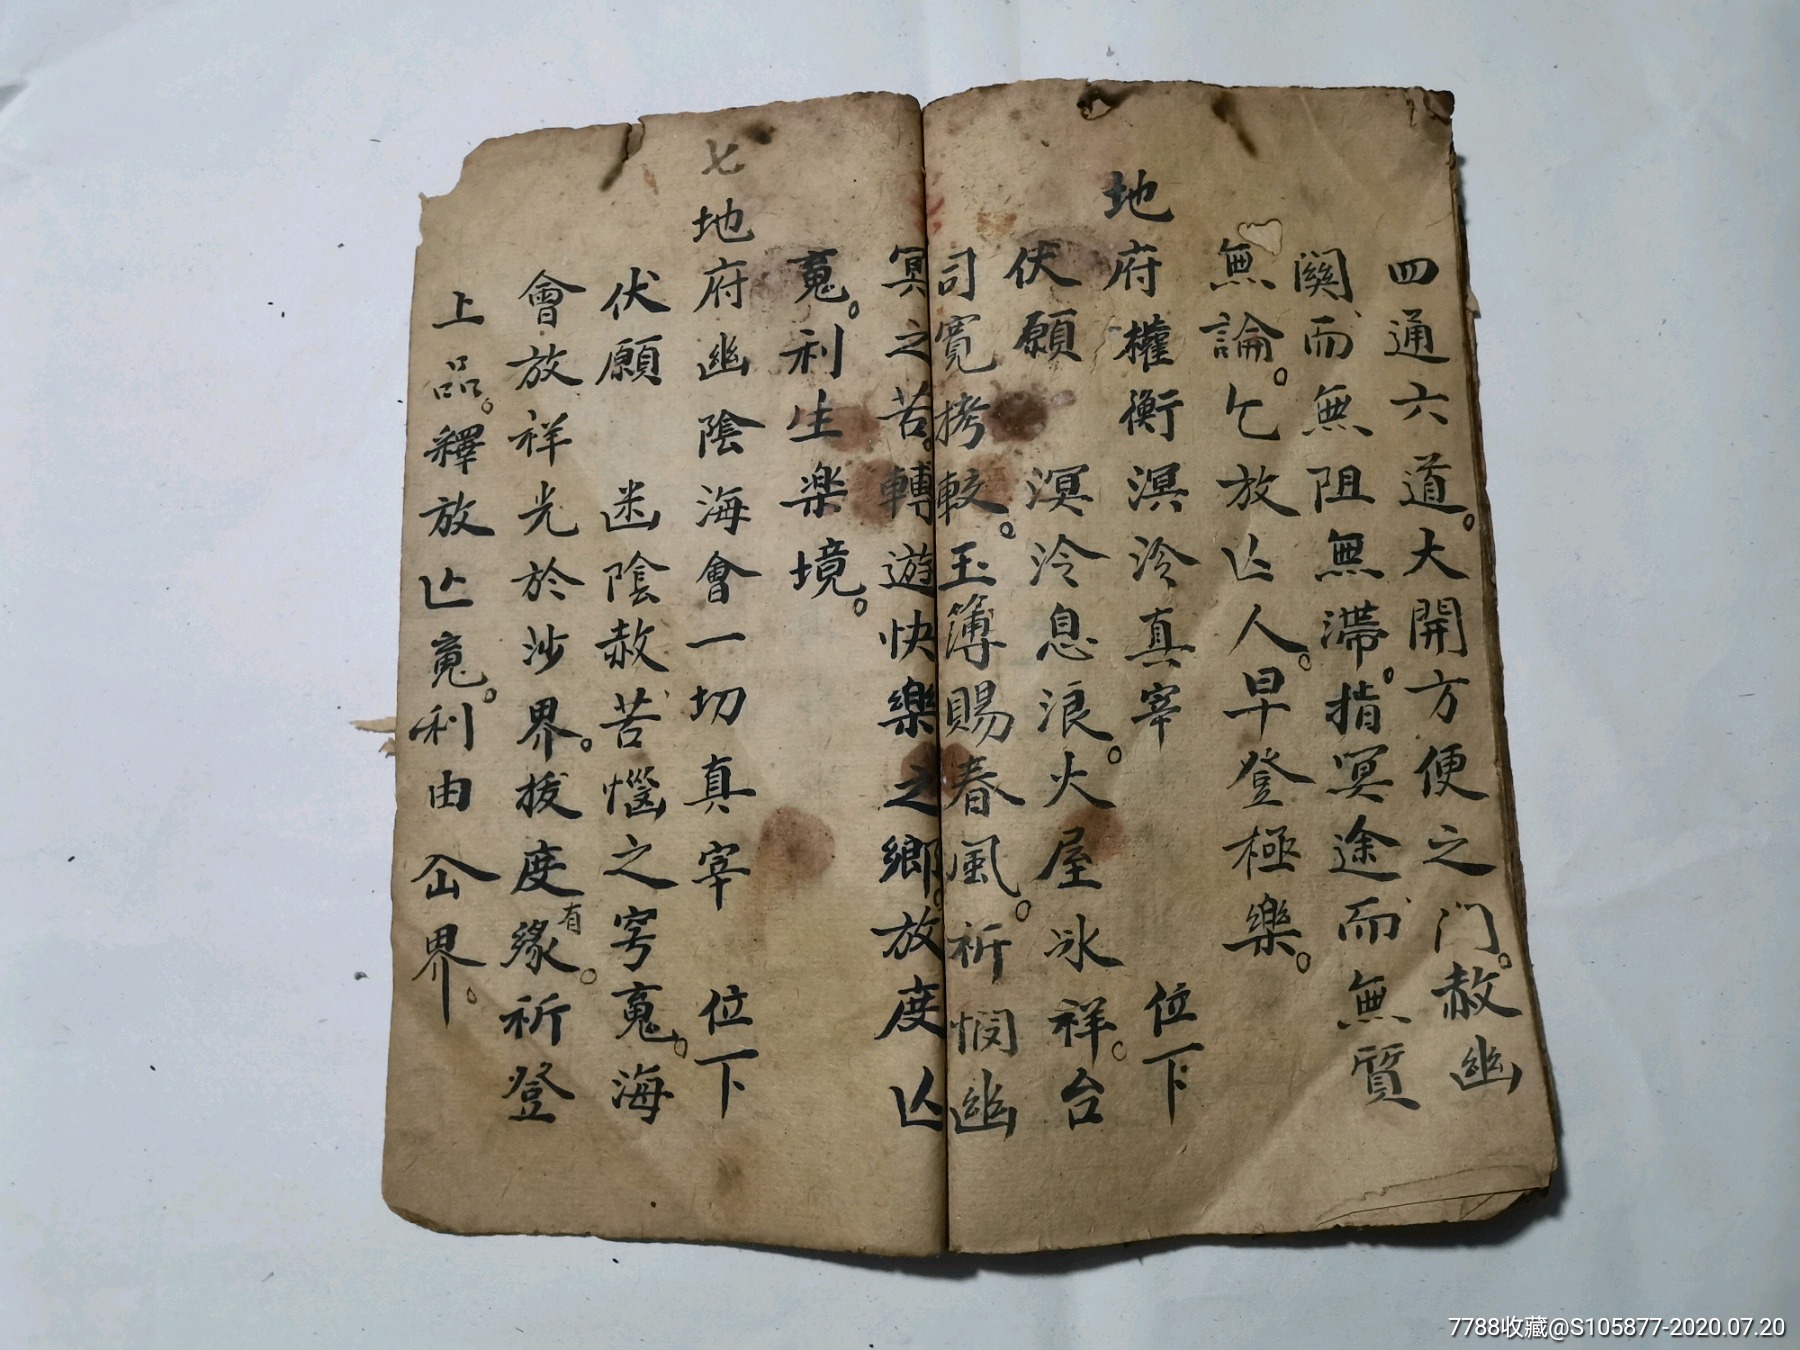 四通六道。大開方便之门。赦幽
関而無阻無滯。指冥途而無質
無論。乞放亾人。早登極樂。
地府權衡溟泠真宰　位下
伏願　溟泠息浪。火屋冰祥。台
司寬拷較。玉簿賜春風。祈憫幽
冥之苦。轉遊快樂之鄉。放度亾
䰟。利生楽境。
七地府幽陰海會一切真宰　位下
伏願　幽陰赦苦惱之䰟。海
會放祥光於沙界。拔度有緣。祈登
上品。釋放亾䰟。利由仚界。
7788收藏@S105877-2020.07.20